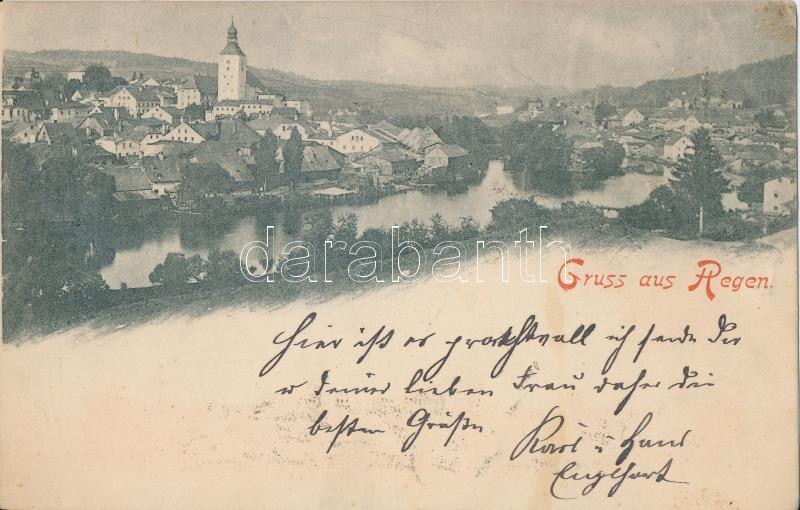 darabanth
Gruss aus Regen.
Hier ist es prachtvoll ich sende dir
u deiner lieben Frau daher die
besten Grüße
Karl u Hans
Englhart